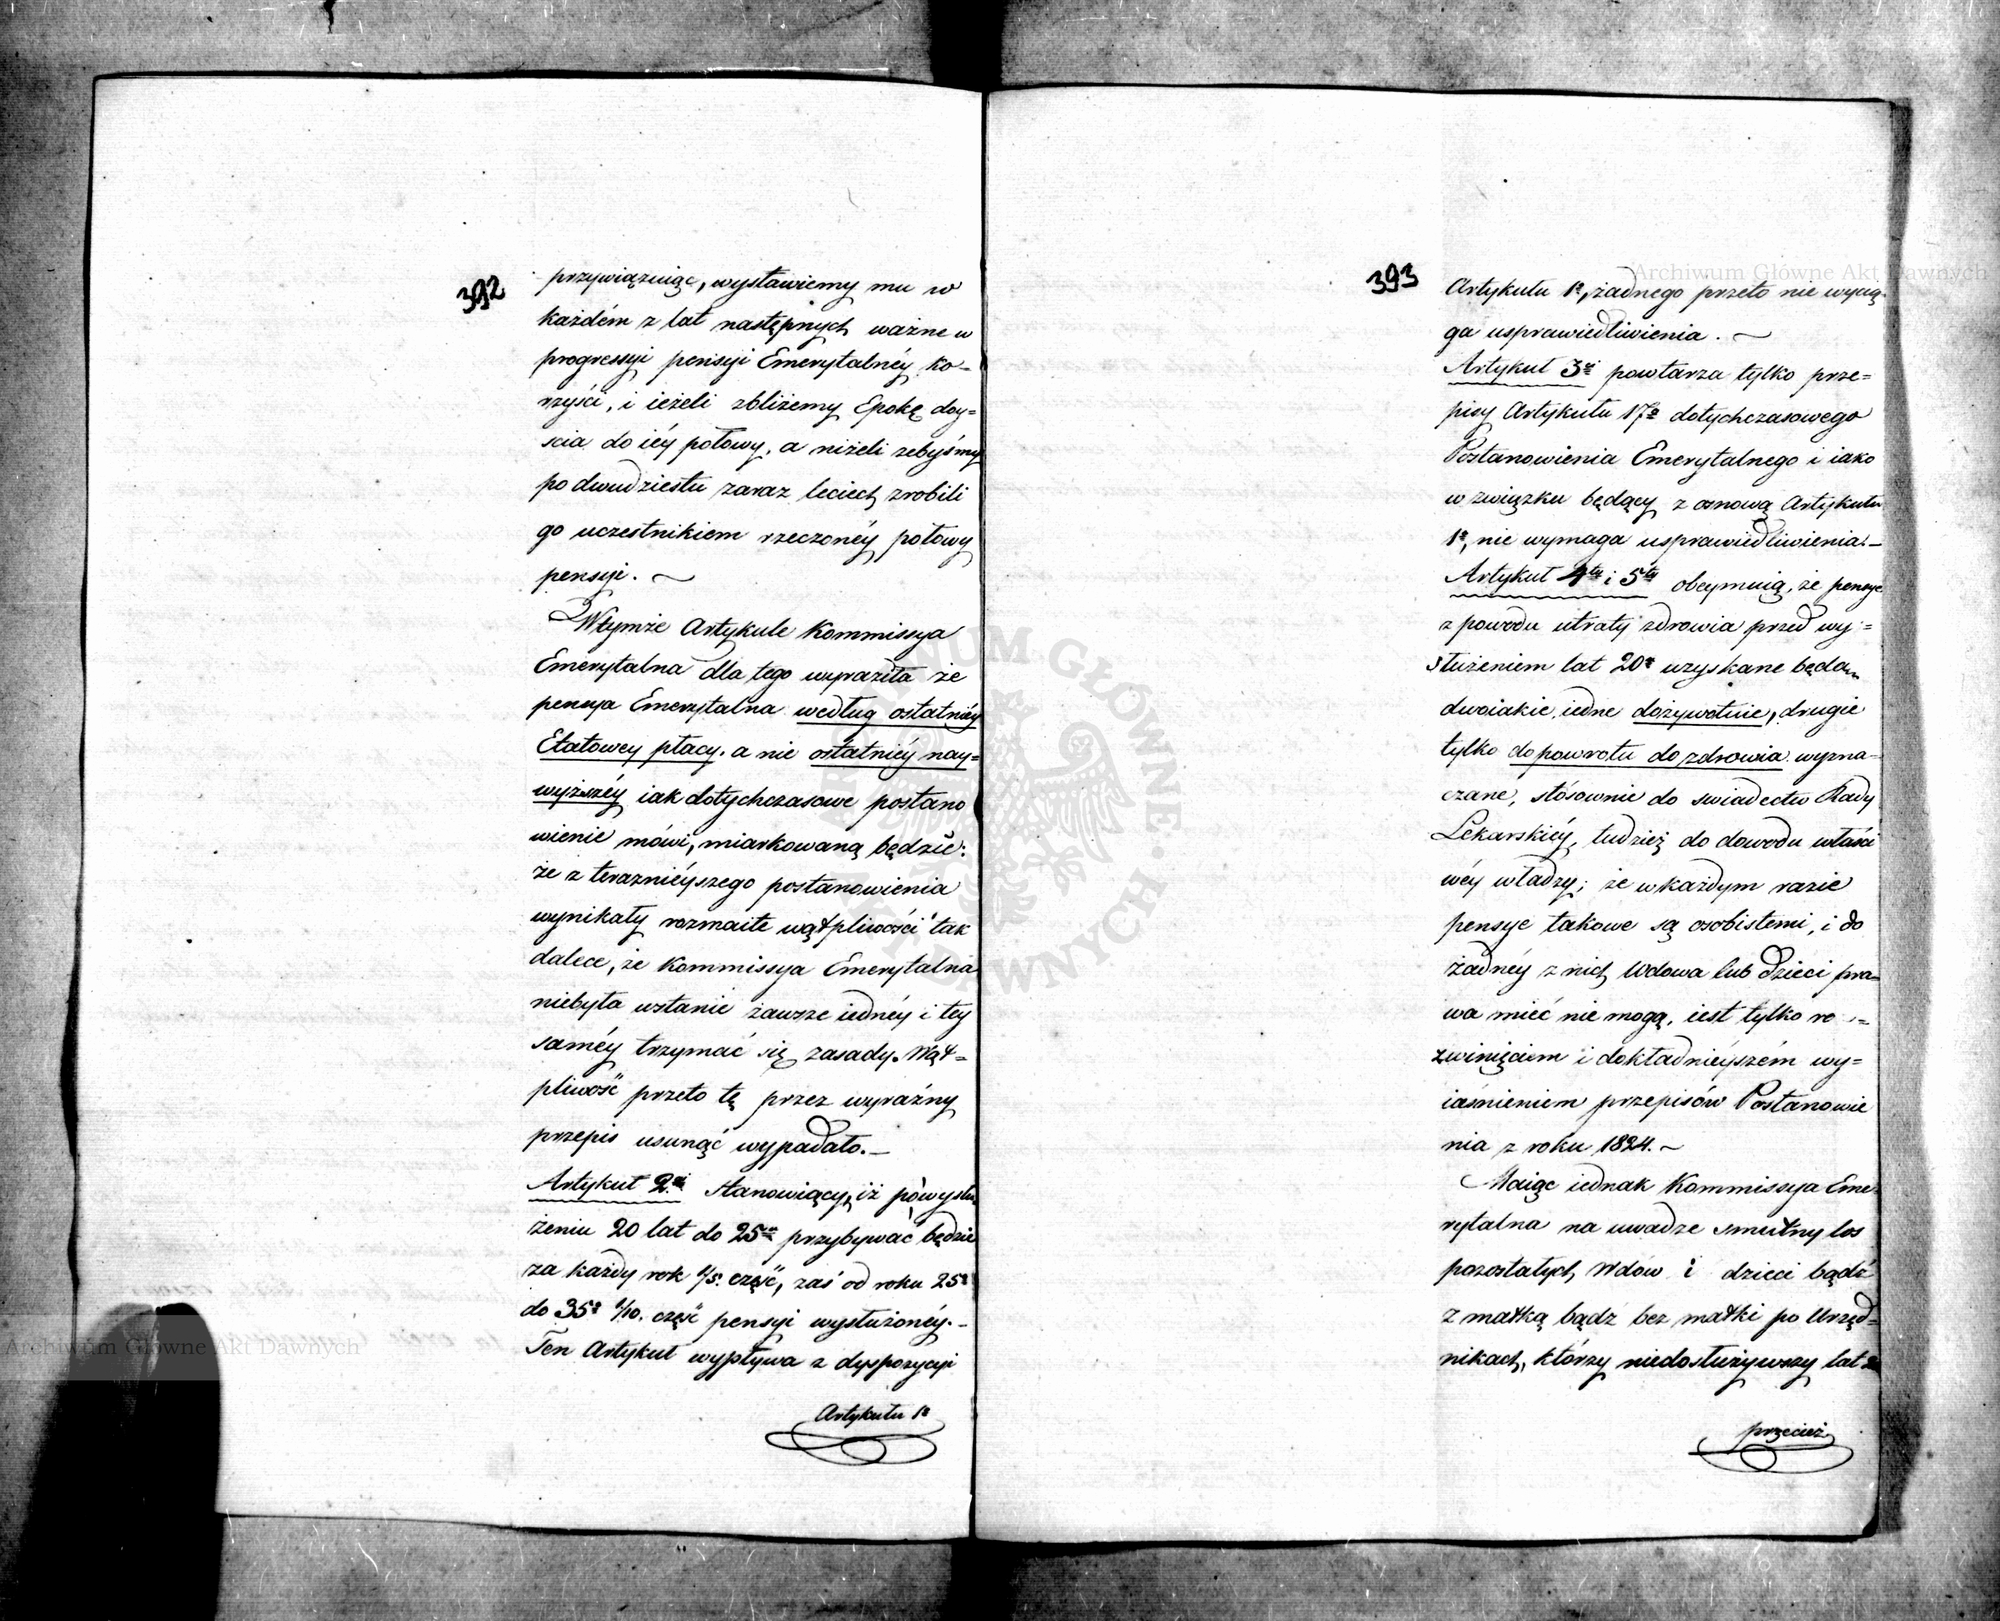 392
przywiązuiąc, wystawiemy mu w
każdém z lat następnych ważne w
progressyi pensyi Emerytalnéy ko-
rzyści, i ieżeli zbliżemy Epokę doy=
scia do iéy połowy, a niżeli żebyśmy
po dwudziestu zaraz leciech zrobili
go uczestnikiem rzeczonéy połowy
pensyi.
W tymże Artykule Kommissya
Emerytalna dla tego wyraziła że
pensya Emerytalna według ostatniéy
Etatowey płacy, a nie ostatniéy nay=
wyższéy iak dotychczasowe postano
wienie mówi, miarkowaną będzie:
że z teraznieyszego postanowienia
wynikały rozmaite wątpliwości tak
dalece, że Kommissya Emerytalna
niebyła wstanie zawsze iednéy i tey
saméy trzymać się zasady. Wąt=
pliwość przeto tę przez wyraźny
przepis usunąć wypadało.-
Artykuł 2i Stanowiący, iż po wysłu
żeniu 20 lat do 25u przybywać będzie
za każdy rok 1/5. część, zaś od roku 25o
do 35o 1/10. część pensyi wysłużonéy.-
Ten Artykuł wypływa z dyspozycyi
Artykułu 1o
393
Artykułu 1o, żadnego przeto nie wycią-
ga usprawiedliwienia.
Artykuł 3i powtarza tylko prze=
pisy Artykułu 17o dotychczasowego
Postanowienia Emerytalnego i iako
w związku będący z osnową Artykułu
1o, nie wymaga usprawiedliwienia.-
Artykuł 4ty i 5ty obeymuią, że pensye
z powodu utraty zdrowia przed wy=
służeniem lat 20u uzyskane będą
dwoiakie, iedne dożywotnie, drugie
tylko do powrotu do zdrowia wyzna-
czane, stósownie do swiadectw Rady
Lekarskiéy, tudzież do dowodu właści
wéy władzy; że w każdym razie
pensye takowe są osobistemi, i do
żadnéy z nich Wdowa lub Dzieci pra-
wa mieć nie mogą, iest tylko ro=
zwinięciem i dokładnieyszém wy=
iaśnieniem przepisów Postanowie
nia z roku 1824.
Maiąc iednak Kommissya Eme
rytalna na uwadze smutny los
pozostałych Wdów i dzieci bądź
z matką bądź bez matki po Urzęd=
nikach, którzy niedosłużywszy lat 20
przecież
Archiwum Główne Akt Dawnych
Archiwum Główne Akt Dawnych
ARCHIWUM GŁÓWNE AKT DAWNYCH